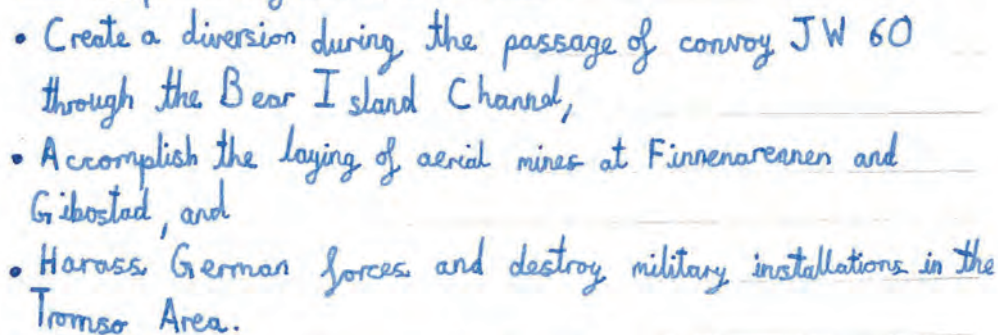 • Create a diversion during the passage of convoy JW 60
through the Bear Island Channel,
• Accomplish the laying of aerial mines at Finnenareannen and
Gibostad, and
• Harass German forces and destroy military installations in the
Tromso Area.